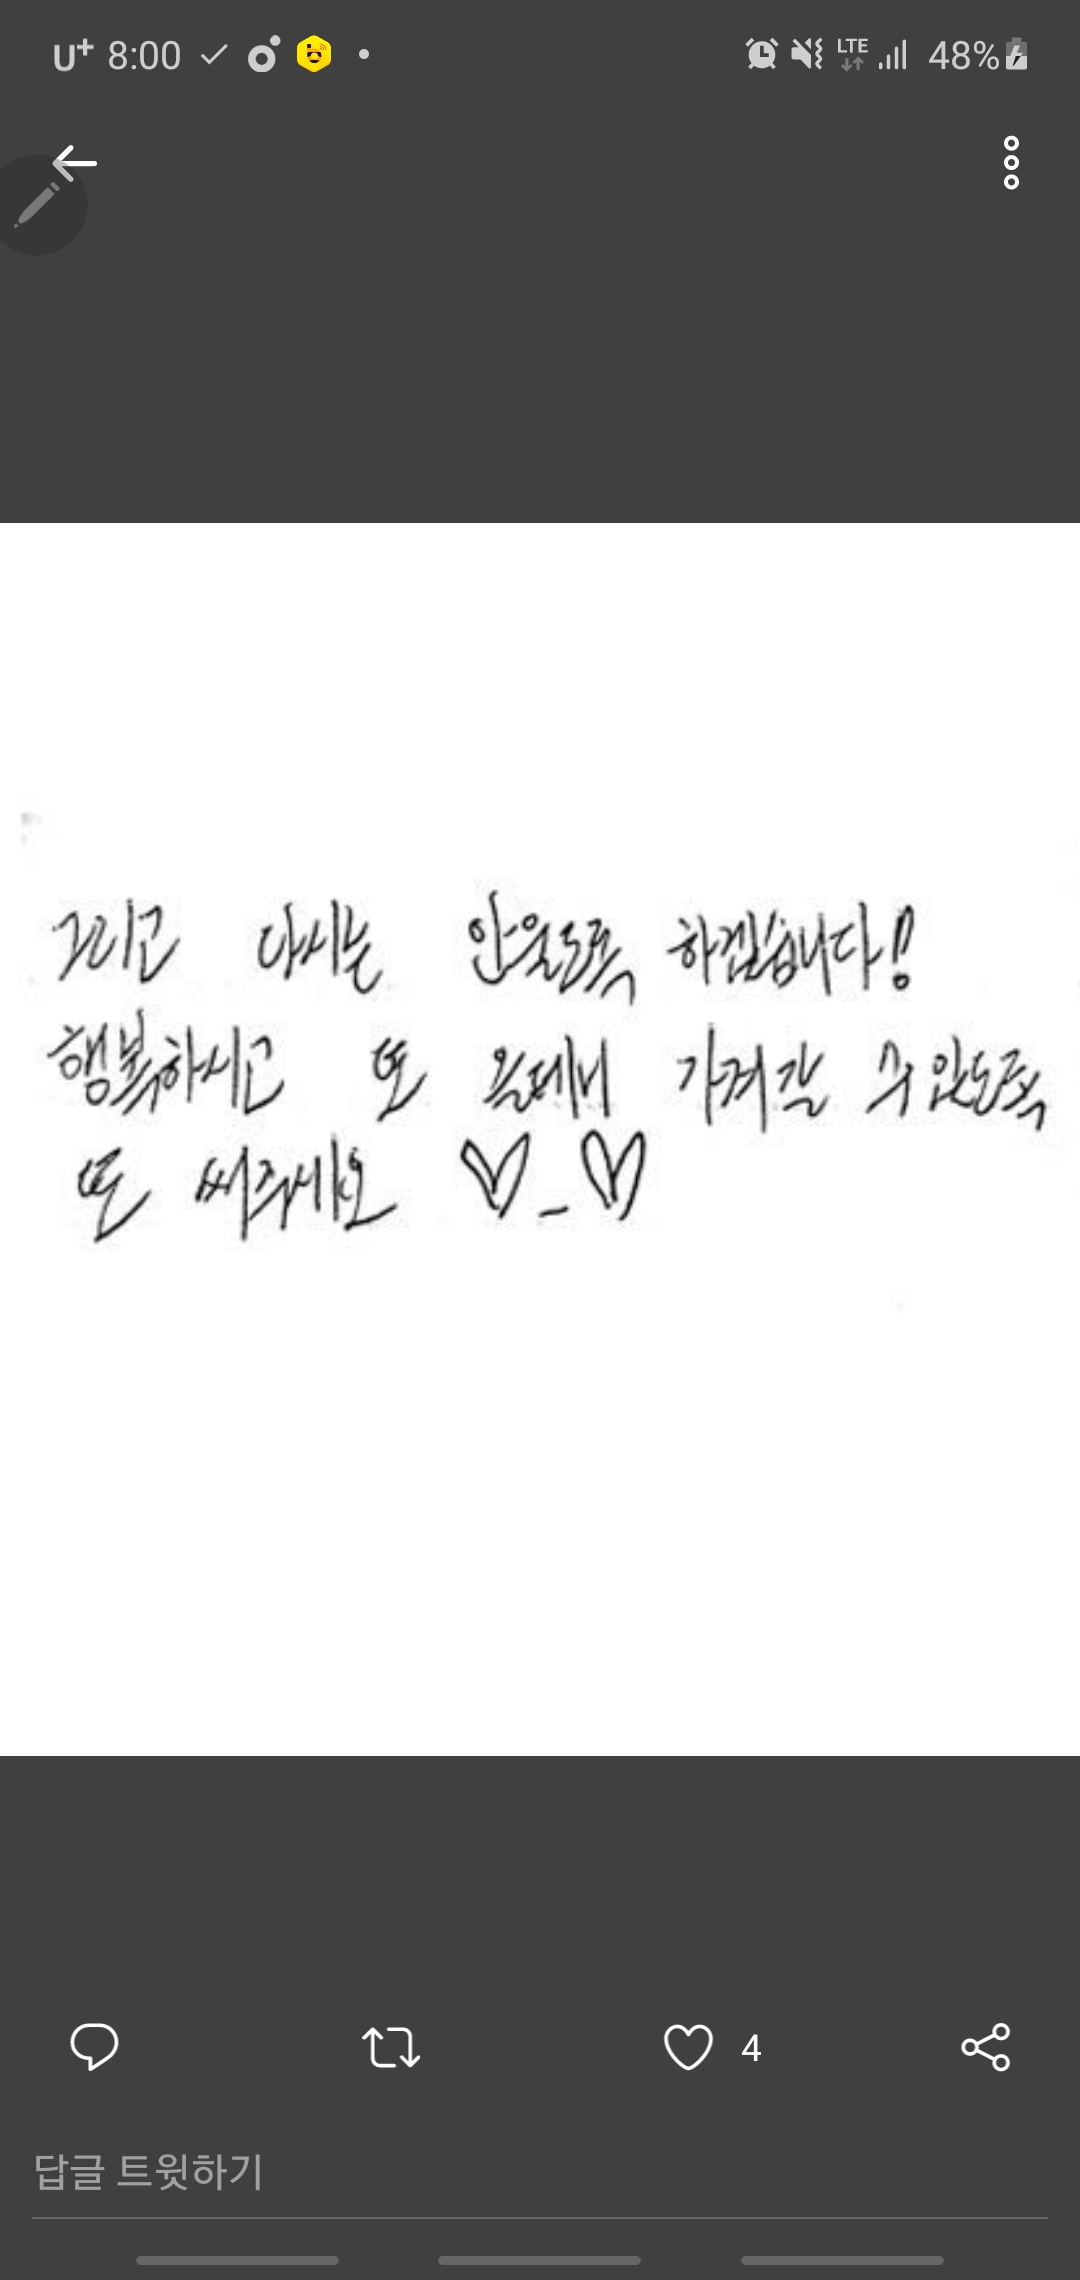 U+ 8:00 LTE 48%
그리고 다시는 안울도록 하겠습니다!
행복하시고 또 올테니 가져갈 수 있도록
또 써주세요 ♡_♡
4
답글 트윗하기